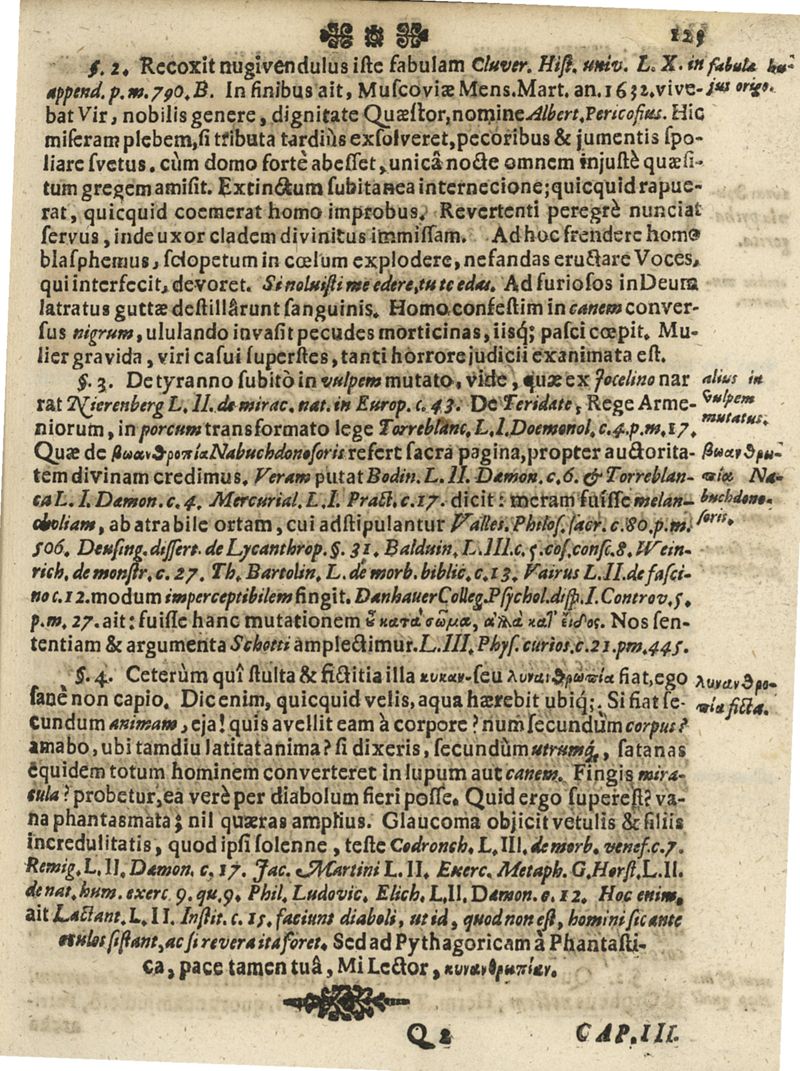 125
§. 2. Recoxit nugivendulus iste fabulam Cluver. Hist. univ. L. X. in fabula hu-
append. p. m. 790. B. In finibus ait, Muscoviæ Mens. Mart. an. 1632. vive- jus origo.
bat Vir, nobilis genere, dignitate Quæstor, nomine Albert. Pericofius. Hic
miseram plebem, si tributa tardiùs exsolveret, pecoribus & jumentis spo-
liare svetus. cùm domo fortè abesset, unicâ nocte omnem injustè quæsi-
tum gregem amisit. Extinctum subitanea internecione; quicquid rapue-
rat, quicquid coemerat homo improbus. Revertenti peregrè nunciat
servus, inde uxor cladem divinitus immissam. Ad hoc frendere homo
blasphemus, sclopetum in cœlum explodere, nefandas eructare Voces,
qui interfecit, devoret. Si noluisti me edere, tu te edas. Ad furiosos in Deum
latratus guttæ destillârunt sanguinis. Homo confestim in canem conver-
sus nigrum, ululando invasit pecudes morticinas, iisq; pasci cœpit. Mu-
lier gravida, viri casui superstes, tanti horrore judicii exanimata est.
§. 3. De tyranno subitò in vulpem mutato, vide, quæ ex Jocelino nar alius in
rat Nierenberg L. II. de mirac. nat. in Europ. c. 43. De Teridate, Rege Arme- vulpem
niorum, in porcum transformato lege Torreblanc. L. I. Doemonol. c. 4. p. m. 17. mutatus.
Quæ de βωανθροπία Nabuchdonosoris refert sacra pagina, propter auctorita- βωανθρω-
tem divinam credimus. Veram putat Bodin. L. II. Dæmon. c. 6. & Torreblan- πία Na-
ca L. I. Dæmon. c. 4. Mercurial. L. I. Pract. c. 17. dicit: meram fuisse melan- buchdono-
choliam, ab atra bile ortam, cui adstipulantur Valles. Philos. sacr. c. 80. p. m. soris.
506. Deusing. dissert. de Lycanthrop. §. 31. Balduin. L. III. c. 5. cas. consc. 8. Wein-
rich. de monstr. c. 27. Th. Bartolin. L. de morb. biblic. c. 13. Vairus L. II. de fasci-
no c. 12. modum imperceptibilem fingit. Danhauer Colleg. Psychol. disp. I. Controv. 5.
p. m. 27. ait: fuisse hanc mutationem ȣ̓ κατὰ σῶμα, ἀλλὰ κατ' εἶδος. Nos sen-
tentiam & argumenta Schotti amplectimur. L. III. Phys. curios. c. 21. pm. 445.
§. 4. Ceterùm quî stulta & fictitia illa κυκαν- seu λυναιθρωπία fiat, ego λυνανθρο-
sanè non capio. Dic enim, quicquid velis, aqua hærebit ubiq;. Si fiat se- πία ficta.
cundum animam, eja! quis avellit eam à corpore? num secundùm corpus?
amabo, ubi tamdiu latitat anima? si dixeris, secundùm utrumq;, satanas
equidem totum hominem converteret in lupum aut canem. Fingis mira-
cula? probetur, ea verè per diabolum fieri posse. Quid ergo superest? va-
na phantasmata; nil quæras amplius. Glaucoma objicit vetulis & filiis
incredulitatis, quod ipsi solenne, teste Codronch. L. III. de morb. venef. c. 7.
Remig. L. II. Dæmon. c. 17. Jac. Martini L. II. Exerc. Metaph. G. Horst. L. II.
de nat. hum. exerc 9. qu. 9. Phil. Ludovic. Elich. L. II. Dæmon. c. 12. Hoc enim,
ait Lactant. L. II. Instit. c. 15. faciunt diaboli, ut id, quod non est, homini sic ante
oculos sistant, ac si revera ita foret. Sed ad Pythagoricam à Phantasti-
ca, pace tamen tuâ, Mi Lector, κυνανθρωπίαν.
Q 2 CAP. III.